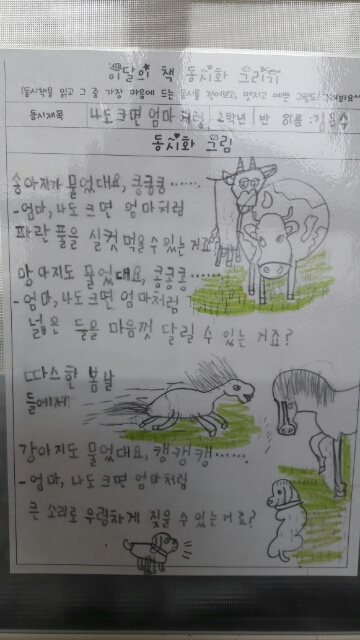 이달의 책 동시화 그리기
(동시책을 읽고 그 중 가장 마음에 드는 동시를 적어보고, 멋지고 예쁜 그림도 그려봐요~
동시제목 나도 크면 엄마처럼 2학년 1반 이름:김윤수
동시화 그림
송아지가 물었대요, 킁킁킁······
-엄마, 나도 크면 엄마처럼
파란 풀을 실컷 먹을 수 있는 거죠
망아지도 물었대요, 콩콩콩······
-엄마, 나도 크면 엄마처럼
넓은 들을 마음껏 달릴 수 있는 거죠?
따스한 봄날
들에서
강아지도 물었대요, 캥캥캥······
-엄마, 나도 크면 엄마처럼
큰 소리로 우렁차게 짖을 수 있는 거죠?